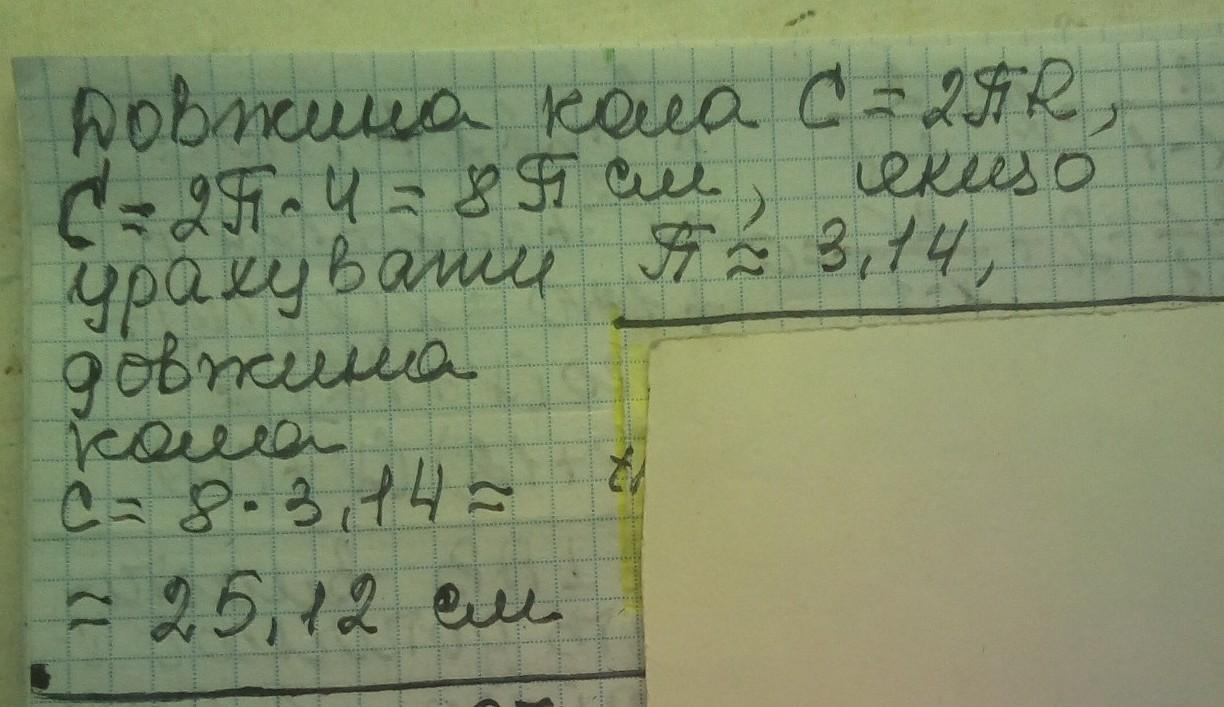 Довжина кола C = 2πR,
C = 2π · 4 = 8π см, якщо
урахувати π ≈ 3,14,
довжина
кола
C = 8 · 3,14 ≈
≈ 25,12 см